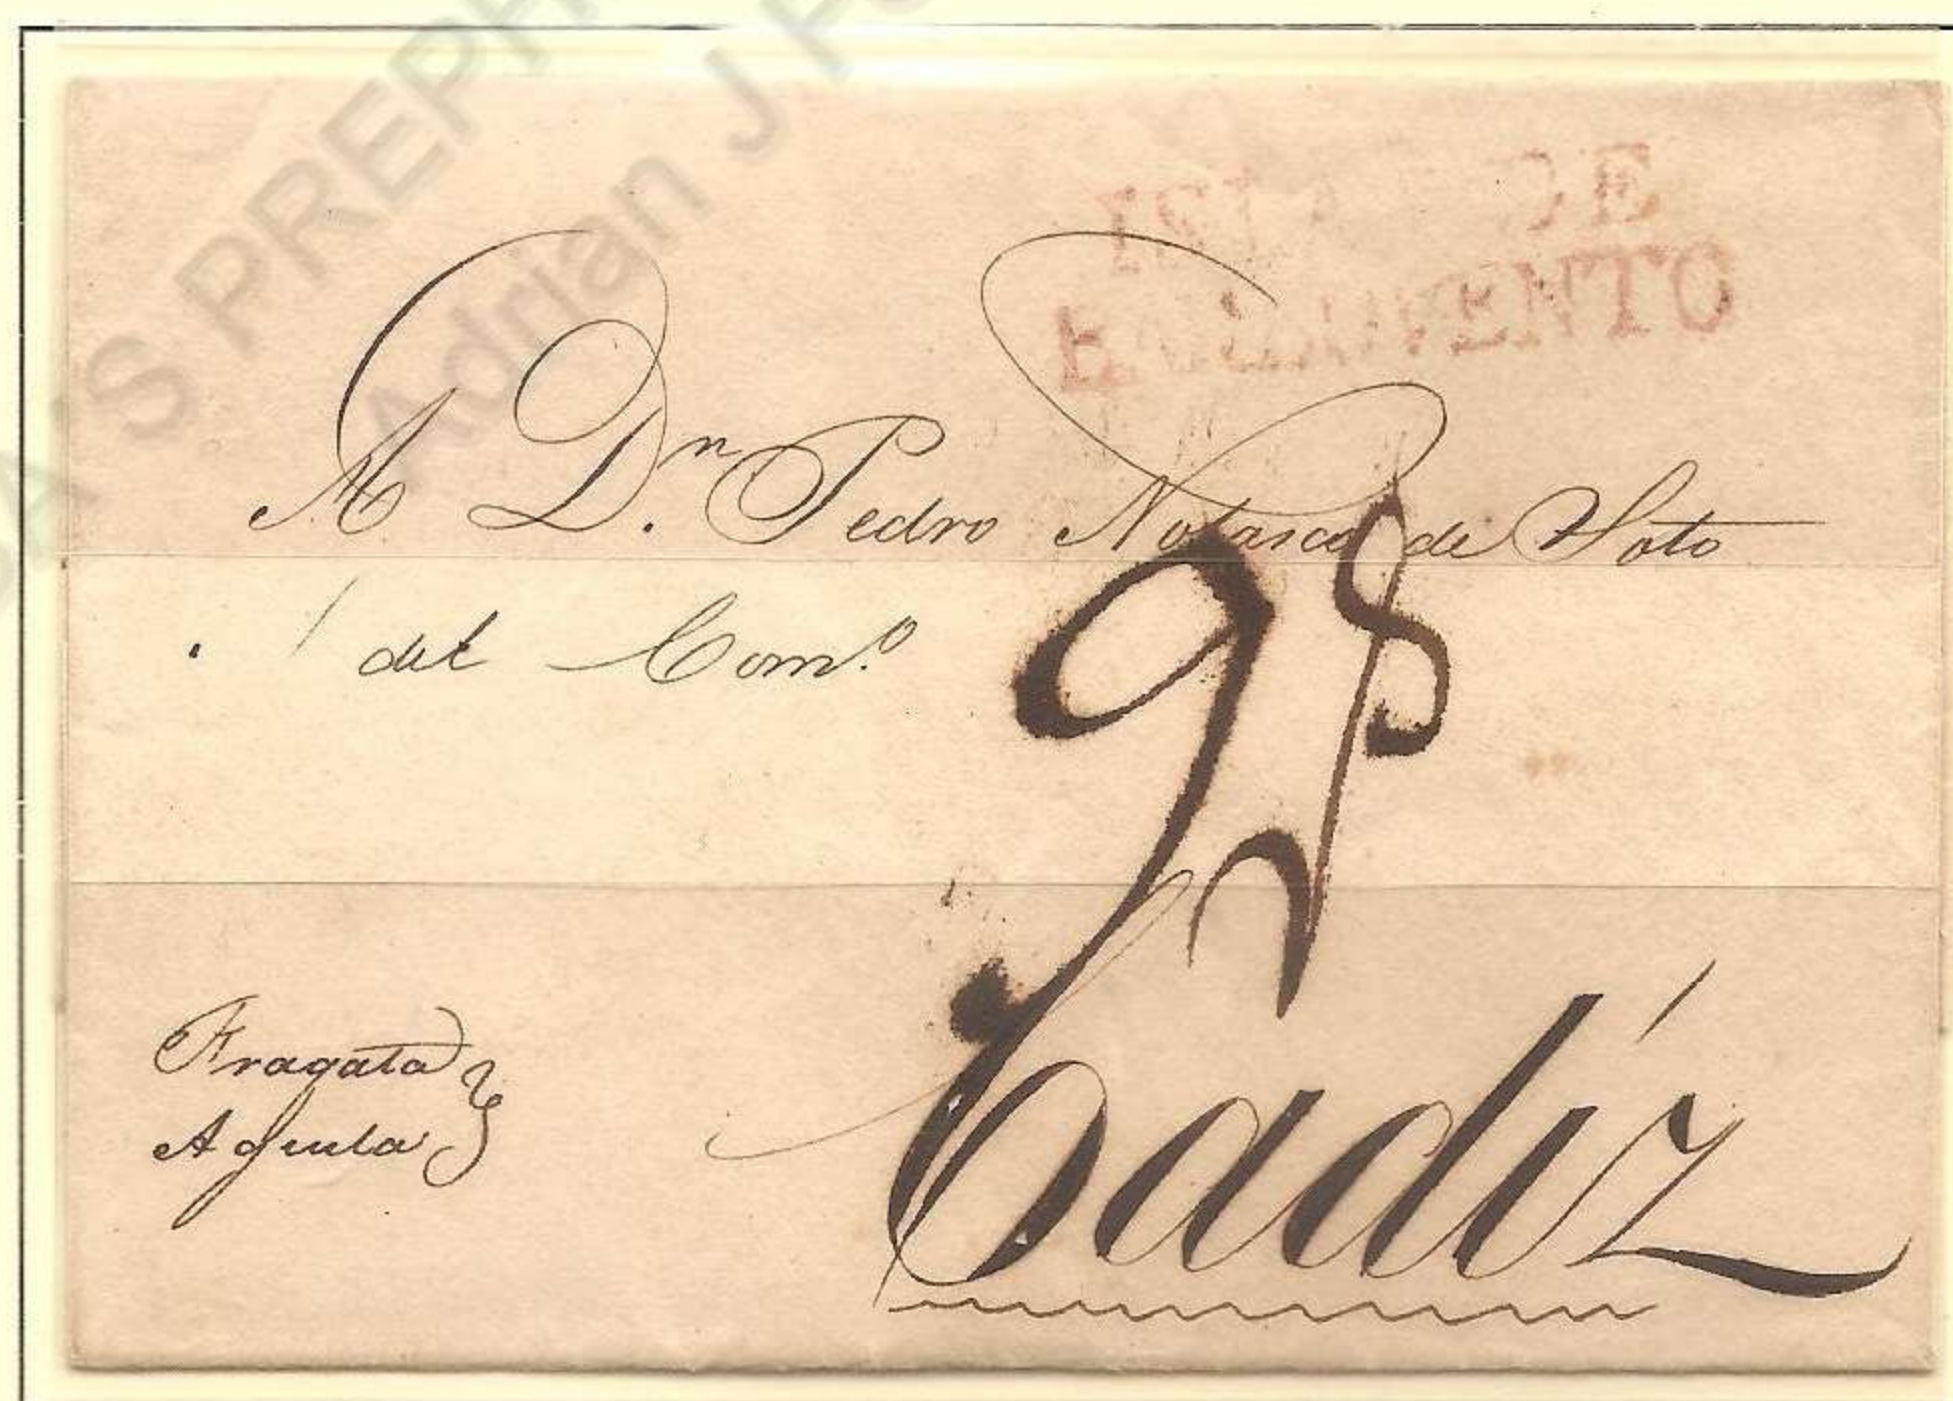 S PREPH
Adrian J F
ISLAS DE
BARLOVENTO
A Dn. Pedro Nolasco de Soto
del Com.o
98
Fragata
Aguila
Cadíz